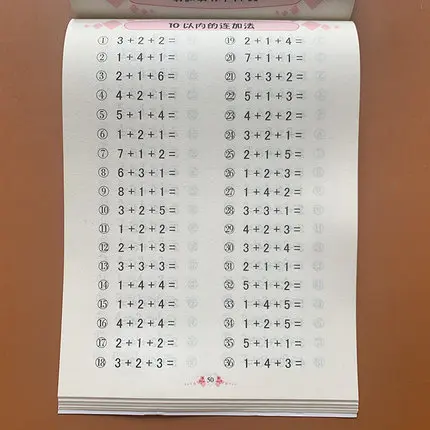 10以内的连加法
① 3+2+2=
② 1+4+1=
③ 2+1+6=
④ 4+2+1=
⑤ 5+1+4=
⑥ 1+2+1=
⑦ 7+1+2=
⑧ 6+3+1=
⑨ 8+1+1=
⑩ 3+2+5=
⑪ 1+2+2=
⑫ 2+1+3=
⑬ 3+3+3=
⑭ 1+4+4=
⑮ 1+2+4=
⑯ 4+2+4=
⑰ 2+1+2=
⑱ 3+2+3=
⑲ 2+1+4=
⑳ 7+1+1=
㉑ 3+3+2=
㉒ 5+1+3=
㉓ 4+2+2=
㉔ 3+2+1=
㉕ 2+1+5=
㉖ 1+2+3=
㉗ 1+4+2=
㉘ 3+3+1=
㉙ 4+2+3=
㉚ 3+2+4=
㉛ 2+1+1=
㉜ 5+1+2=
㉝ 1+4+5=
㉞ 1+2+5=
㉟ 5+1+1=
㊱ 1+4+3=
50